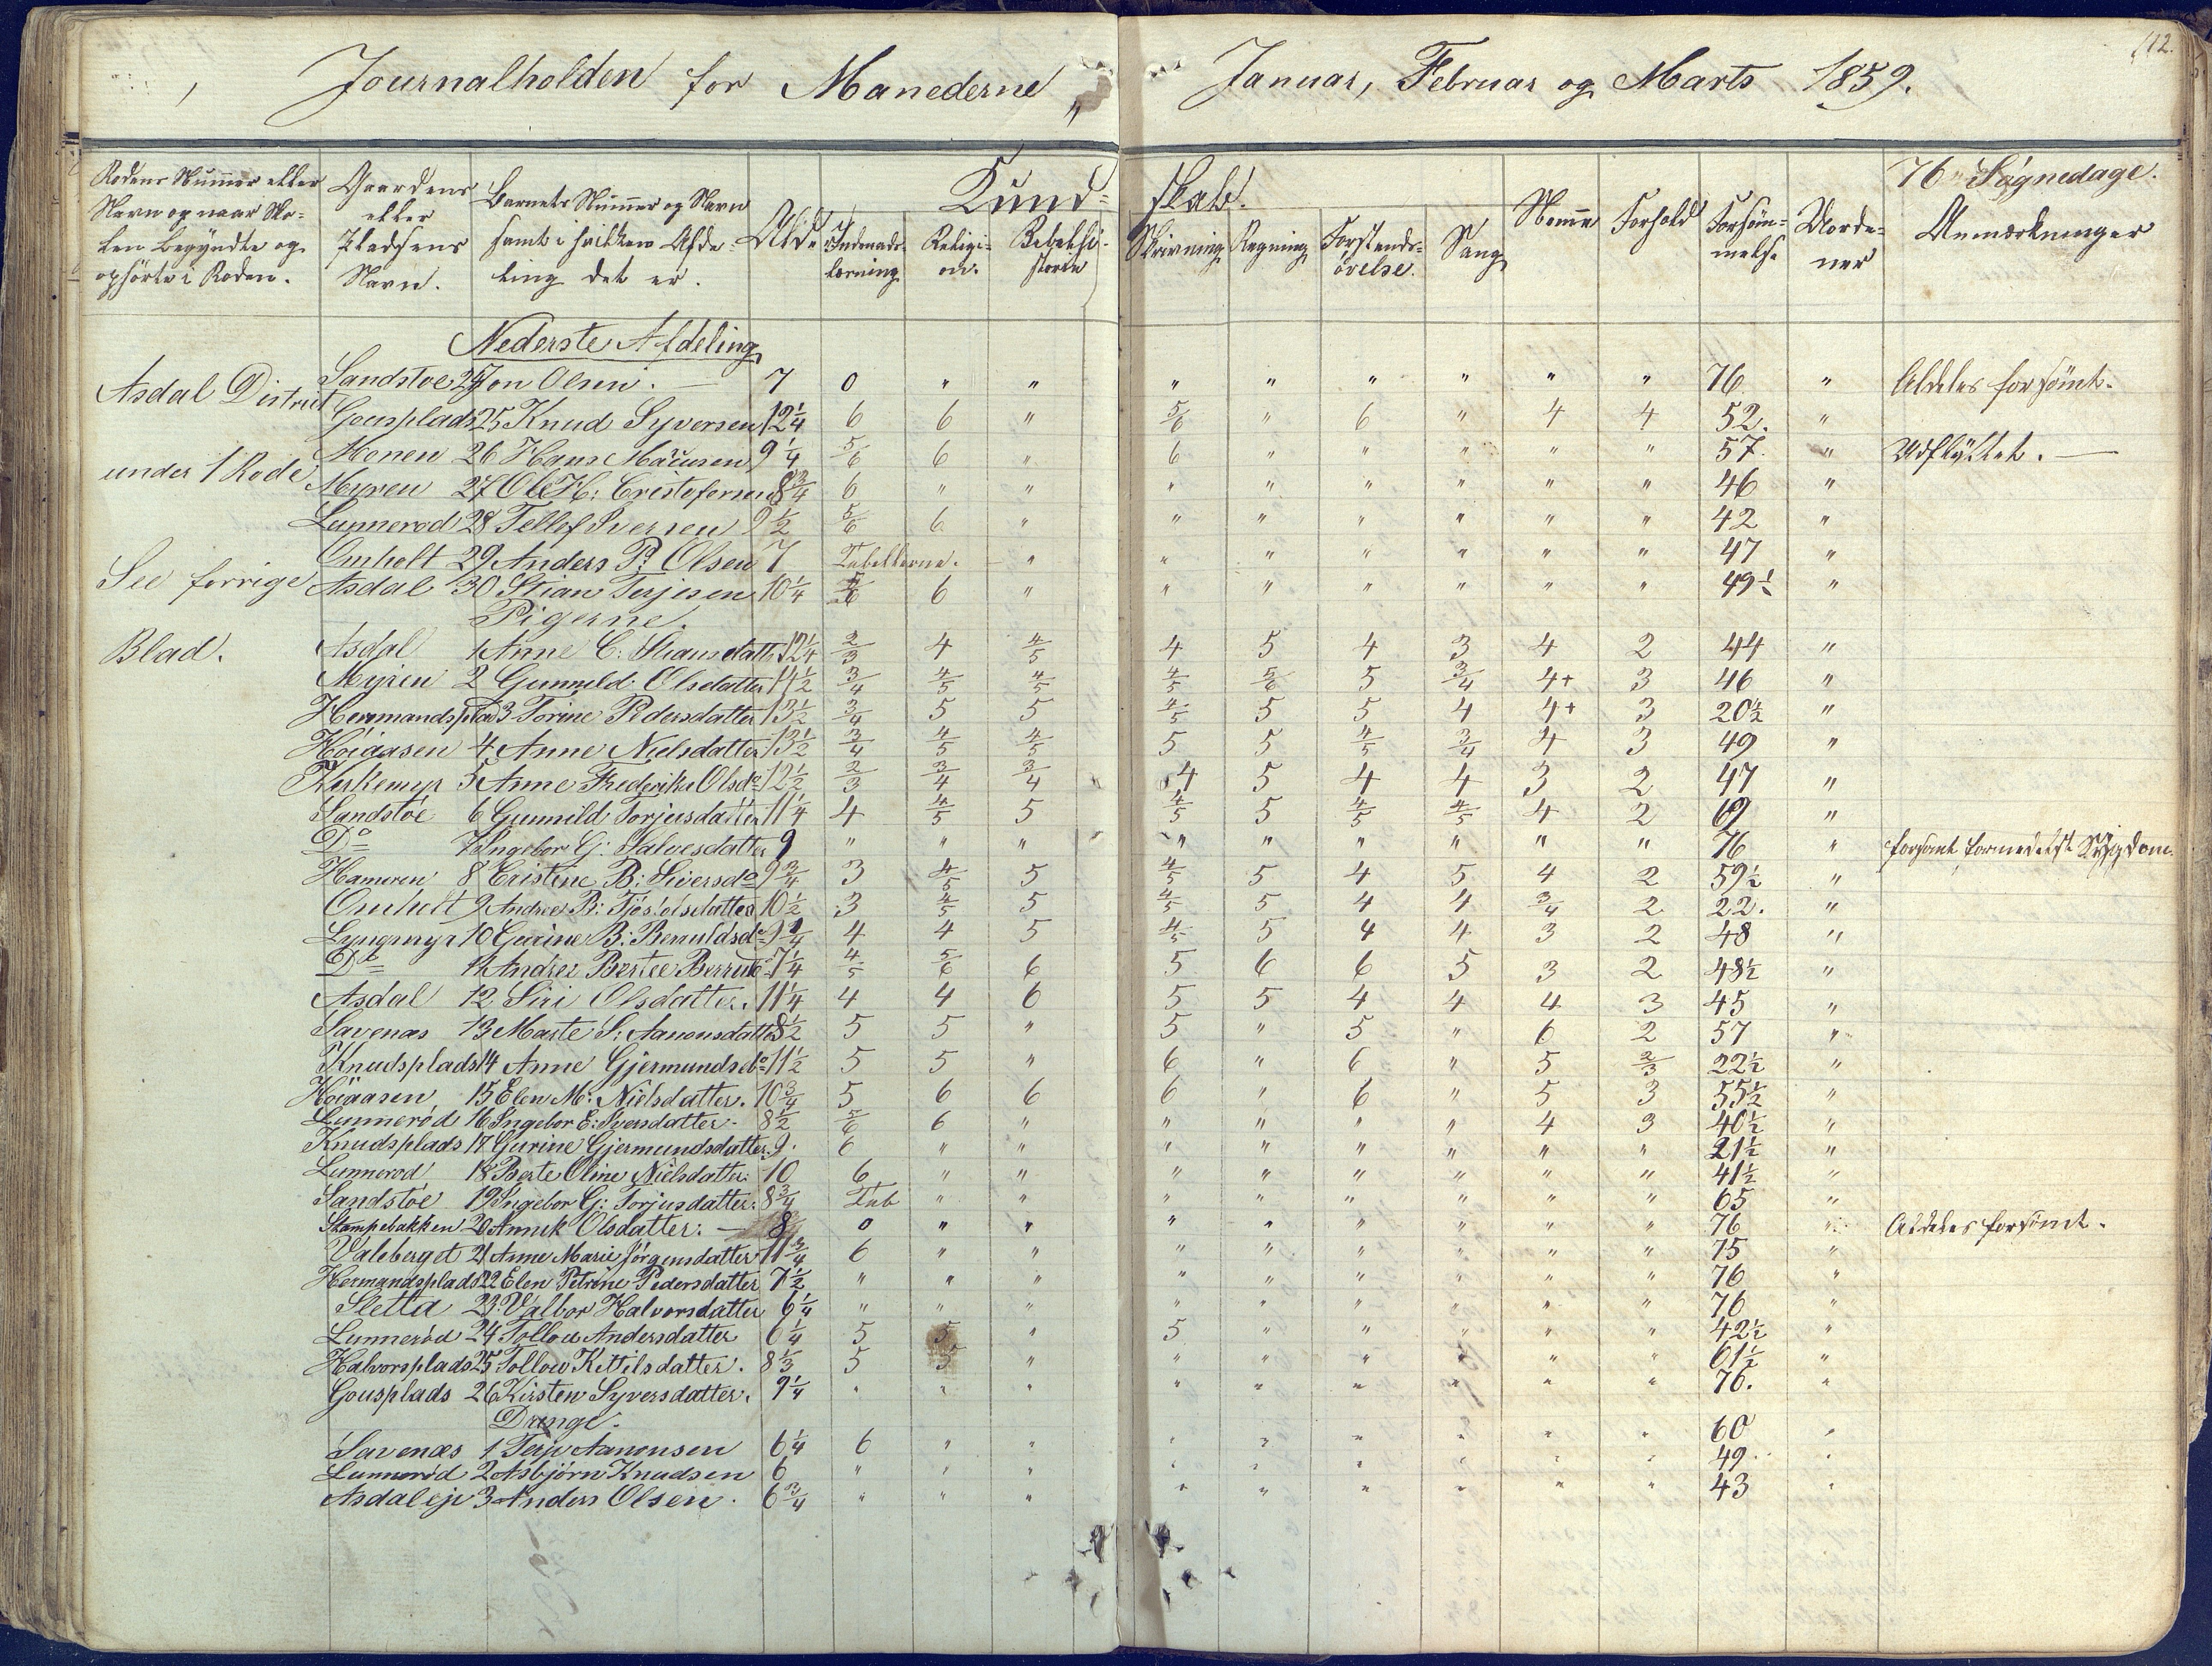 112.
Journalholden for Manederne Januar, Februar og Marts 1859.
76 Søgnedage.
Rodens Nummer eller Navn og naar Skolen begyndte og ophörte i Roden.
Gaardens eller Pladsens Navn.
Barnets Nummer og Navn samt i hvilken Afdeling det er.
Alder
Kund- skab.
Indenadslæsning
Religion.
Bibelhistorie
Skrivning
Regning
Forstandsövelse.
Sang
Nemme
Forhold
Forsömmelse
Anmærkninger
Nederste Afdeling
Asdal District
under 1 Rode
See forrige
Blad.
Sandstoe 24 Jon Olsen. 7 0 " " " " " " " " 76 " Aldeles forsömt.
Gousplads 25 Knud Syversen 12 1/4 6 6 " 5/6 " 6 " 4 4 52. "
Monen 26 Hans 9 1/4 5/6 6 " 6 " " " " " 57. " Udflyttet.
Myren 27 Ole H: Cristofersen 8 3/4 6 " " " " " " " " 46 "
Lunnerod 28 Tellef Iversen 9 1/2 5/6 6 " " " " " " " 42 "
Omholt 29 Anders P. Olsen 7 Tabellerne. " " " " " " " 47 "
Asdal 30 Stian Terjesen 10 1/4 5/6 6 " " " " " " " 49 1/2 "
Pigerne.
Asdal 1 Anne C: Stiansdatt 12 1/4 2/3 4 4/5 4 5 4 3 4 2 44 "
Myren 2 Gunnild Olsdatter 14 1/2 3/4 4/5 4/5 4/5 5/6 5 3/4 4+ 3 46 "
Hermandsplas 3 Torine Pedersdatter 13 1/2 3/4 5 5 4/5 5 5 4 4+ 3 20 1/2 "
Høiaasen 4 Anne Nielsdatter 13 1/2 3/4 4/5 4/5 5 5 4/5 3/4 4 3 49 "
Kirkemyr 5 Anne Frederikke Olsd. 12 1/2 2/3 3/4 3/4 4 5 4 4 3 2 47 "
Sandstöe 6 Gunnild Torjusdatter 11 1/4 4 4/5 5 4/5 5 4/5 4/5 4 2 69 "
Do 7 Ingebor G: Salvesdatter 9 " " " " " " " " " 76 " forsömt formedelst Sygdom
Hameren 8 Cristine B: Siversda 9 3/4 3 4/5 5 4/5 5 4 5 4 2 59 1/2 "
Omholt 9 Andrea B: Tjöstolsdatter 10 1/2 3 4/5 5 4/5 5 4 4 3/4 2 22. "
Lyngmyr 10 Gurine B: 9 3/4 4 4 5 4/5 5 4 4 3 2 48 "
Do 11 7 1/4 4/5 5/6 6 5 6 6 5 3 2 48 1/2 "
Asdal 12 Siri Olsdatter. 11 1/4 4 4 6 5 5 4 4 4 3 45 "
Savenæs 13 Marte S: Aanonsdatter 8 1/2 5 5 " 5 " 5 " 6 2 57 "
Knudsplads 14 Anne Gjermundsd. 11 1/2 5 5 " 6 " 6 " 5 2/3 22 1/2 "
Höiaasen 15 Elen M: Nielsdatter. 10 3/4 5 6 6 6 " 6 " 5 3 55 1/2 "
Lunneröd 16 Ingebor E: Iversdatter. 8 1/2 5/6 6 " " " " " 4 3 40 1/2 "
Knudsplads 17 Gurine Gjermundsdatter. 9. 6 " " " " " " " " 21 1/2 "
Lunnerod 18 Berte Oline Nielsdatter. 10 6 " " " " " " " " 41 1/2 "
Sandstöe 19 Ingebor G: Torjusdatter. 8 3/4 Tab " " " " " " " " 65 "
Stampebakken 20 Annik Olsdatter. 8 0 " " " " " " " " 76 " Aldeles forsömt.
Valeberget 21 Anne Marie Jörgensdatter 11 3/4 6 " " " " " " " " 75 "
Hermandsplads 22 Elen Petrine Pedersdatter 7 1/2 " " " " " " " " " 76 "
Sletta 23. Valbor Halvorsdatter 6 1/4 " " " " " " " " " 76 "
Lunneröd 24 Tollow Andersdatter 6 1/4 5 5 " 5 " " " " " 42 1/2 "
Halvorsplads 25 Tollow Kittilsdatter. 8 1/3 5 5 " " " " " " " 61 1/2 "
Gousplads 26 Kirsten Syversdatter. 9 1/4 " " " " " " " " " 76. "
Drenge.
Savenæs 1 Terje Aanonsen 6 1/4 6 " " " " " " " " 60 "
Lunneröd 2 Asbjörn Knudsen 6 " " " " " " " " " 49. "
Asdaleje 3 Anders Olsen. 6 3/4 " " " " " " " " " 43 "